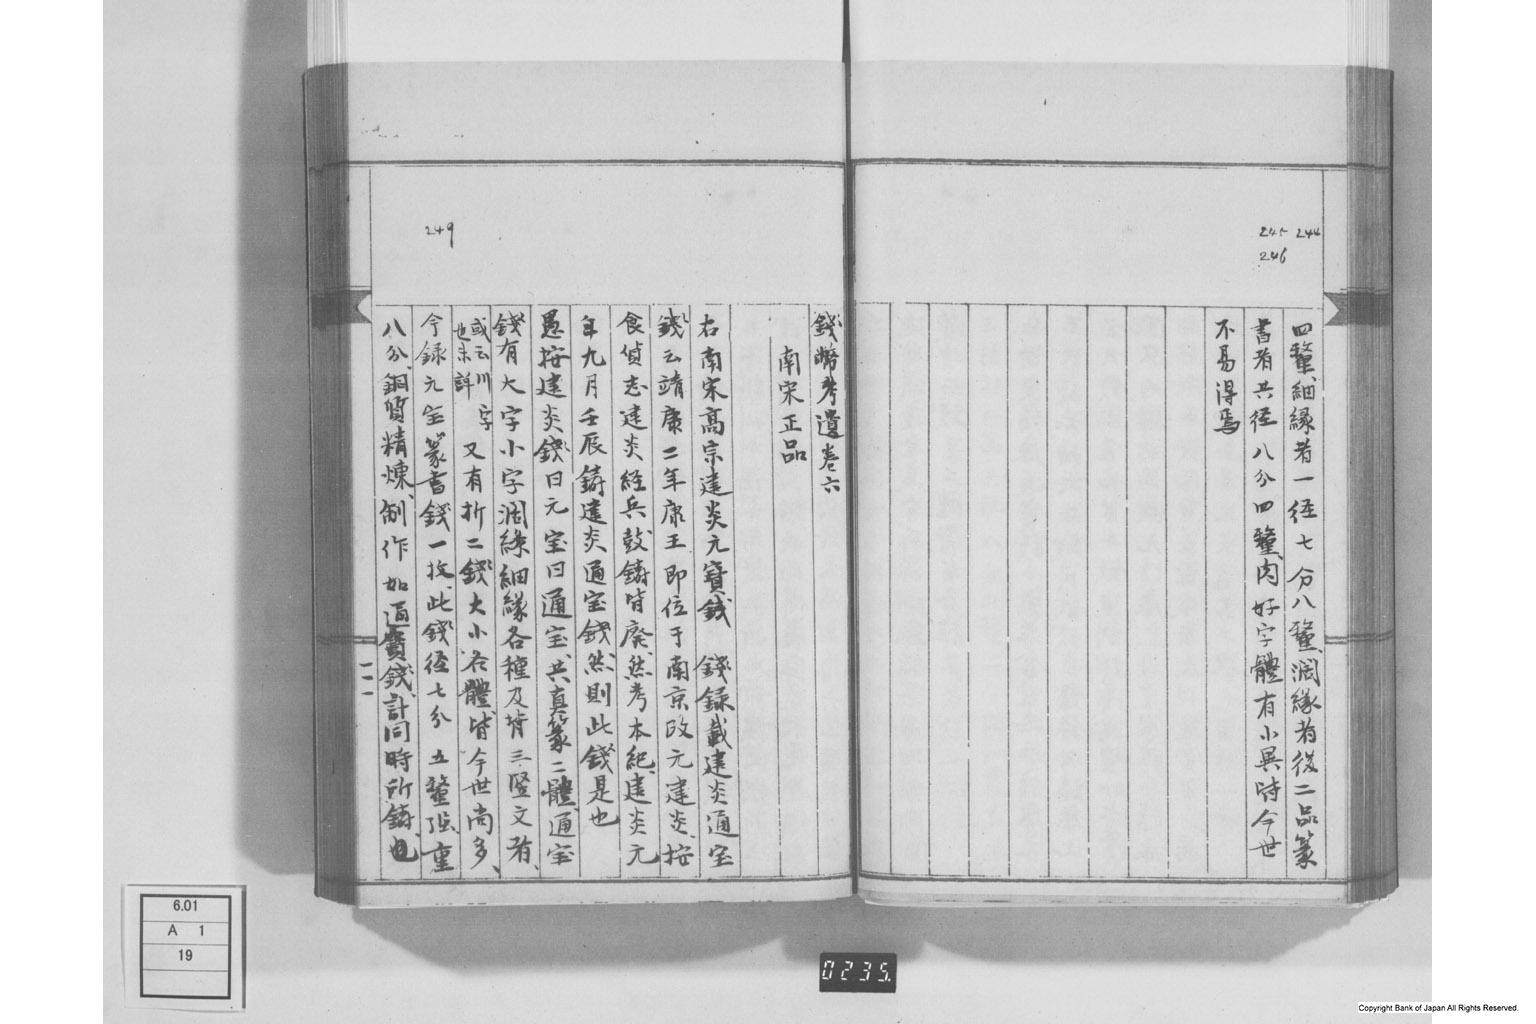 244
245
246
四釐細縁者一径七分八釐濶縁者後二品篆
書者共径八分四釐肉好字體有小異時今世
不易得焉
錢幣考遺巻六
南宋正品
右南宋髙宗建炎元寶錢 錢録載建炎通宝
錢云靖康二年康王即位于南京改元建炎按
食貨志建炎経兵鼓鋳皆廃然考本紀建炎元
年九月壬辰鋳建炎通宝錢然則此錢是也
愚按建炎錢曰元宝曰通宝共真篆二體通宝
錢有大字小字濶縁細縁各種及背三竪文者
或云川字
也未詳
又有折二錢大小各體皆今世尚多
249
今録元宝篆書錢一枚此錢径七分 五釐强重
八分銅質精煉制作如通寶錢計同時所鋳也
一一一
6.01
A 1
19
0235.
Copyright Bank of Japan All Rights Reserved.